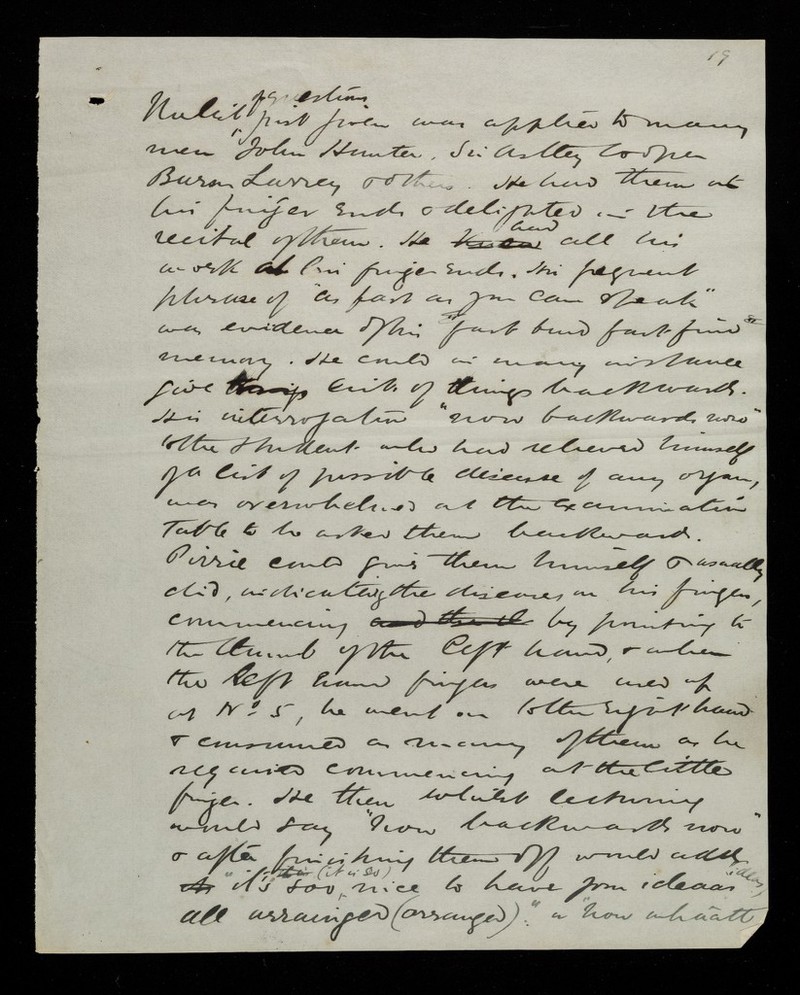 19
questions
just given was applied to many
men "John Hunter. Sir Astley Cooper
Baron Larrey & others. He had them at
his finger ends & delighted in the
recital of them. He had all his
work at his finger ends. His frequent
phrase of "as fast as you can speak"
was evidence of his "fast bind fast find"
memory. He could in many instance
give lists of things backwards.
His interrogative "now backwards now"
to the student who had relieved himself
of a list of possible disease of any organ,
was overwhelmed at the examination
Table to be asked them backwards.
Pirrie could give them himself & usually
did, indicating the diseases on his fingers,
commencing and then by pointing to
the thumb of the left hand, & when
the left hand fingers were used up
at No. 5, he went on to the right hand
& consumed as many of them as he
required commencing at the little
finger. He then whilst lecturing
would say "now backwards now"
& after finishing them off would add
(it is so) ideas,
"it's soo nice to have your ideaas
all arrainged (arranged)." "now whäatt